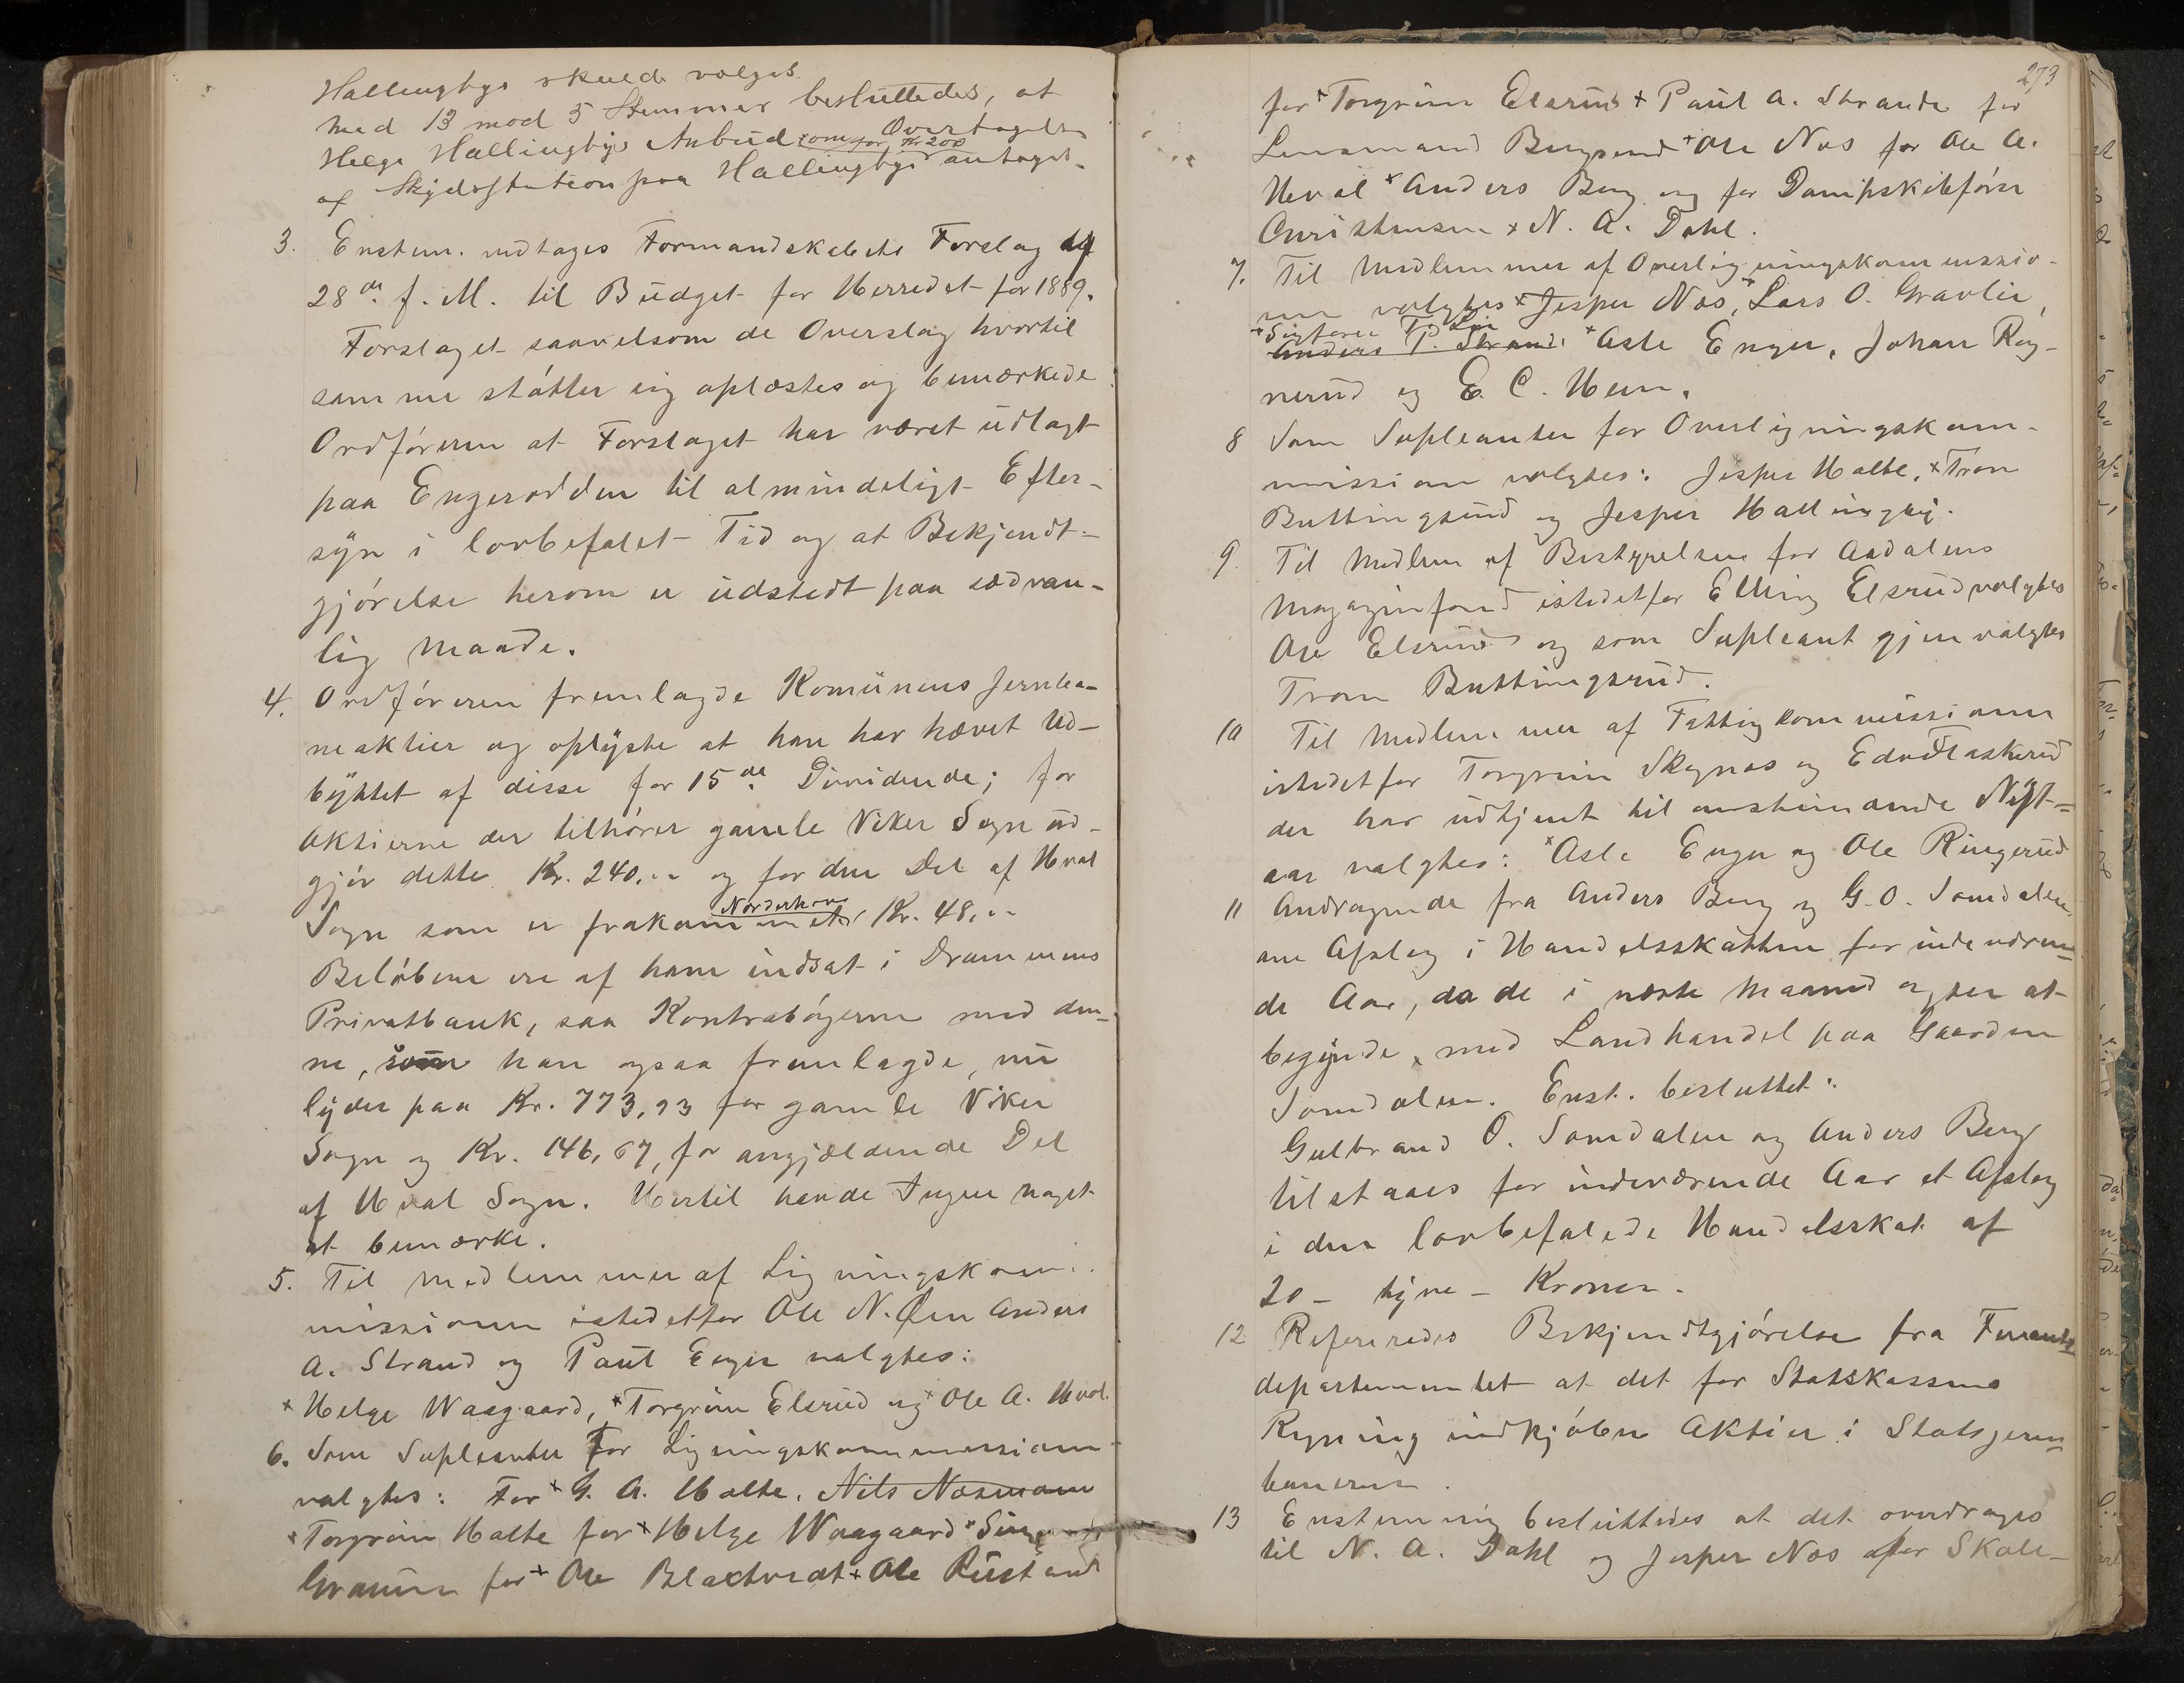 Hallingbys skulde vælges.
Med 13 mod 5 Stemmer besluttedes, at
Helge Hallingbys Anbud om Overtagelse
for Kr 200
af Skydsstation paa Hallingby antages.
3. Enstem. vedtages Formandskabets Forslag af
28de f. M. til Budget for Herredet for 1889.
Forslaget saavelsom de Overslag hvortil
samme støtter sig oplæstes og bemærkede
Ordføreren at Forslaget har været udlagt
paa Engerodden til almindeligt Efter-
syn i lovbefalet Tid og at Bekjendt-
gjørelse herom er udstedt paa sædvan-
lig Maade.
4. Ordføreren fremlagde Komunens Jernba-
neaktier og oplyste at han har hævet Ud-
byttet af disse for 15de Dividende; for
Aktierne der tilhører gamle Viker Sogn ud-
gjør dette Kr. 240.-- og for den Del af Hval
Norderhov
Sogn som er frakommet Kr. 48.--
Beløbene ere af ham indsat i Drammens
Privatbank, saa Kontrabøgerne med den-
ne, som han ogsaa fremlagde, nu
lyder paa Kr. 773,93 for gamle Viker
Sogn og Kr. 146,67, for angjældende Del
af Hval Sogn. Hertil havde Ingen noget
at bemærke.
5. Til Medlemmer af Ligningskom-
missionen istedetfor Ole N. Øen Anders
A. Strand og Paul Enger valgtes:
× Helge Waagaard, × Torgrim Elsrud og × Ole A. Hval.
6. Som Supleanter for Ligningskommissionen
valgtes: For × G. A. Halte, Nils Næsmoen
× Torgrim Halte for × Helge Waagaard ×
for × Ole Blaktvedt × Ole Rustand
273
for × Torgrim Elsrud × Paul A. Strande for
Lensmand × Ole Næs for Ole A.
Hval × Anders Berg og for Dampskibfører
Christensen × N. A. Dahl.
7. Til Medlemmer af Overligningskommissio-
nen valgtes × Jesper Næs, × Lars O. Gravlie,
×
Anders P. Strande × Asle Enger, Johan Rog-
nerud og E. C. Hem.
8 Som Supleanter for Overligningskom-
missionen valgtes: Jesper Halte, × Tron
Buttingsrud og Jesper Hallingby.
9. Til Medlem af Bestyrelsen for Aadalens
Magazinfond istedetfor Elling Elsrud valgtes
Ole Elsrud og som Supleant gjenvalgtes
Tron Buttingsrud.
10 Til Medlemmer af Fattigkommissionen
istedetfor Torgrim Skagnæs og Edv. Flaskerud
der har udtjent til anstundende Nyt-
aar valgtes: × Asle Enger og Ole Ringerud
11 Andragende fra Anders Berg og G. O. Somdalen
om Afslag i Handelsskatten for indeværen-
de Aar, da de i næste Maaned agter at
begynde med Landhandel paa Gaarden
Somdalen. Enst. besluttet:
Gulbrand O. Somdalen og Anders Berg
tilstaaes for indeværende Aar et Afslag
i den lovbefalede Handelsskat af
20 – tyve – Kroner.
12 Refereredes Bekjendtgjørelse fra Finants-
departementet at det for Statskassens
Regning indkjøber Aktier i Statsjern-
banerne.
13 Enstemmig besluttedes at det overdrages
til N. A. Dahl og Jesper Næs for Skole-